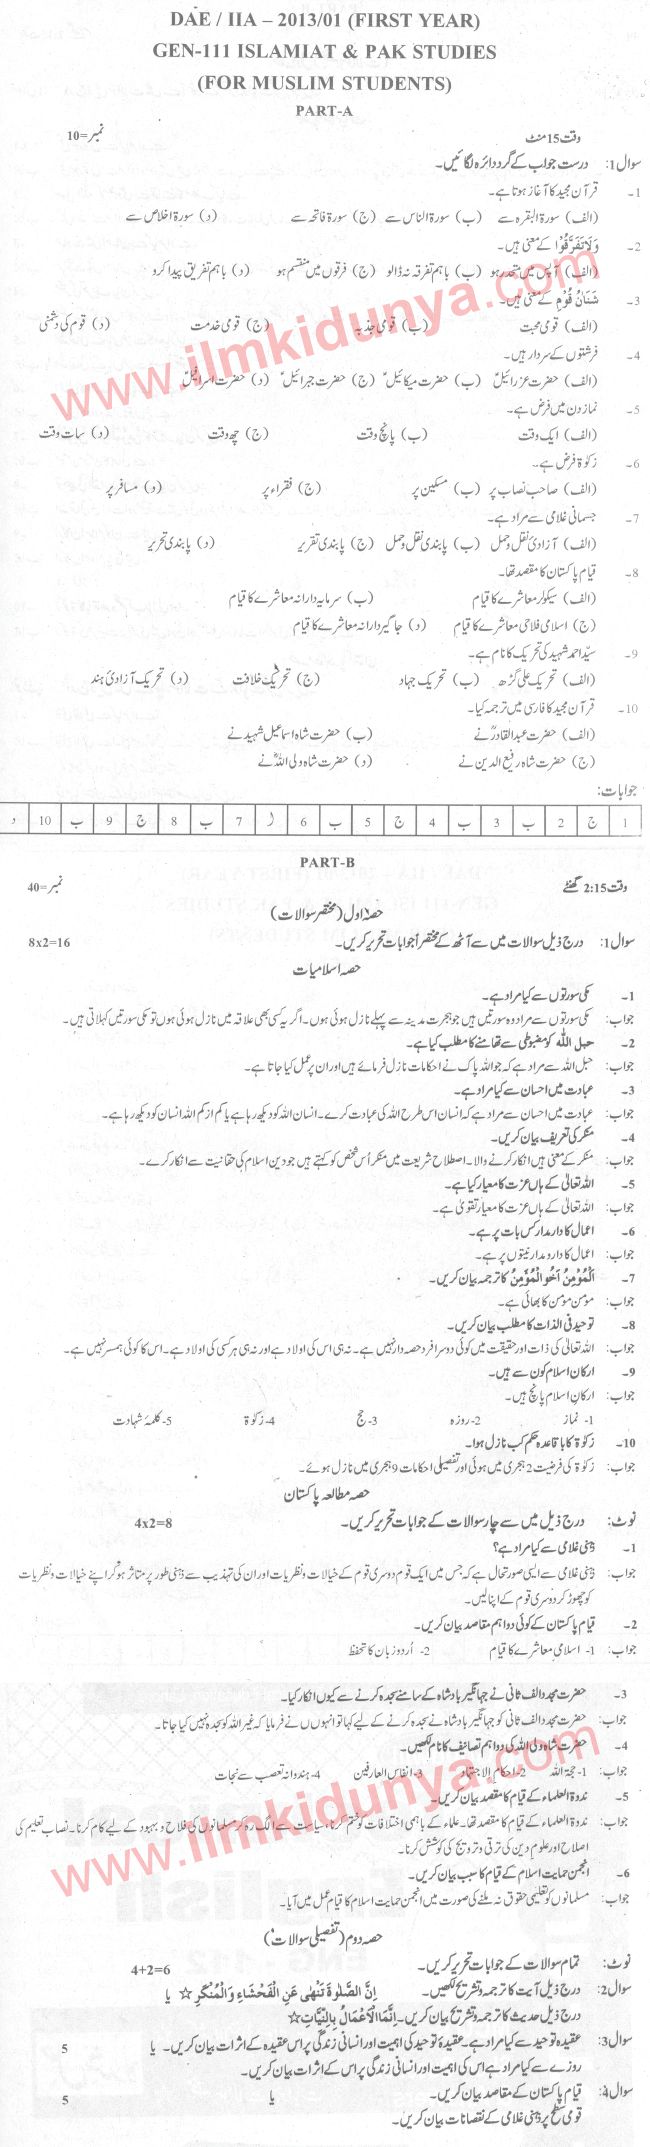 DAE / IIA – 2013/01 (FIRST YEAR)
GEN-111 ISLAMIAT & PAK STUDIES
(FOR MUSLIM STUDENTS)
PART-A
وقت 15 منٹ نمبر=10
سوال 1: درست جواب کے گرد دائرہ لگائیں۔
1۔ قرآن مجید کا آغاز ہوتا ہے۔
(الف) سورۃ البقرہ سے (ب) سورۃ الناس سے (ج) سورۃ فاتحہ سے (د) سورۃ اخلاص سے
2۔ وَلَا تَفَرَّقُوْا کے معنی ہیں۔
(الف) آپس میں متحد رہو (ب) باہم تفرقہ نہ ڈالو (ج) فرقوں میں منقسم ہو (د) باہم تفریق پیدا کرو
3۔ شَنَاٰنُ قَوْمٍ کے معنی ہیں۔
(الف) قومی محبت (ب) قومی جذبہ (ج) قومی خدمت (د) قوم کی دشمنی
4۔ فرشتوں کے سردار ہیں۔
(الف) حضرت عزرائیلؑ (ب) حضرت میکائیلؑ (ج) حضرت جبرائیلؑ (د) حضرت اسرافیلؑ
5۔ نماز دن میں فرض ہے۔
(الف) ایک وقت (ب) پانچ وقت (ج) چھ وقت (د) سات وقت
6۔ زکوٰۃ فرض ہے۔
(الف) صاحب نصاب پر (ب) مسکین پر (ج) فقراء پر (د) مسافر پر
7۔ جسمانی غلامی سے مراد ہے۔
(الف) آزادئ نقل و حمل (ب) پابندی نقل و حمل (ج) پابندی تقریر (د) پابندی تحریر
8۔ قیام پاکستان کا مقصد تھا۔
(الف) سیکولر معاشرے کا قیام (ب) سرمایہ دارانہ معاشرے کا قیام
(ج) اسلامی فلاحی معاشرے کا قیام (د) جاگیردارانہ معاشرے کا قیام
9۔ سیّد احمد شہید کی تحریک کا نام ہے۔
(الف) تحریک علی گڑھ (ب) تحریک جہاد (ج) تحریک خلافت (د) تحریک آزادئ ہند
10۔ قرآن مجید کا فارسی میں ترجمہ کیا۔
(الف) حضرت عبدالقادرؒ نے (ب) حضرت شاہ اسماعیل شہیدؒ نے
(ج) حضرت شاہ رفیع الدین نے (د) حضرت شاہ ولی اللہؒ نے
جوابات:
1 ج 2 ب 3 ب 4 ج 5 ب 6 ل 7 ب 8 ج 9 ب 10 د
PART-B
وقت 2:15 گھنٹے نمبر=40
حصہ اول (مختصر سوالات)
سوال 1: درج ذیل سوالات میں سے آٹھ کے مختصراً جوابات تحریر کریں۔ 8x2=16
حصہ اسلامیات
1۔ مکی سورتوں سے کیا مراد ہے۔
جواب: مکی سورتوں سے مراد وہ سورتیں ہیں جو ہجرت مدینہ سے پہلے نازل ہوئی ہوں۔ اگر یہ کسی بھی علاقہ میں نازل ہوئی ہوں تو مکی سورتیں کہلاتی ہیں۔
2۔ حبل اللّٰہ کو مضبوطی سے تھامنے کا مطلب کیا ہے۔
جواب: حبل اللہ سے مراد ہے کہ جو اللہ پاک نے احکامات نازل فرمائے ہیں اور ان پر عمل کیا جاتا ہے۔
3۔ عبادت میں احسان سے کیا مراد ہے۔
جواب: عبادت میں احسان سے مراد ہے کہ انسان اس طرح اللہ کی عبادت کرے۔ انسان اللہ کو دیکھ رہا ہے یا کم از کم اللہ انسان کو دیکھ رہا ہے۔
4۔ منکر کی تعریف بیان کریں۔
جواب: منکر کے معنی ہیں انکار کرنے والا۔ اصطلاح شریعت میں منکر اُس شخص کو کہتے ہیں جو دین اسلام کی حقانیت سے انکار کرے۔
5۔ اللہ تعالیٰ کے ہاں عزت کا معیار کیا ہے۔
جواب: اللہ تعالیٰ کے ہاں عزت کا معیار تقویٰ ہے۔
6۔ اعمال کا دارومدار کس بات پر ہے۔
جواب: اعمال کا دارومدار نیتوں پر ہے۔
7۔ اَلْمُؤْمِنُ اَخُو الْمُؤْمِنُ کا ترجمہ بیان کریں۔
جواب: مومن مومن کا بھائی ہے۔
8۔ توحید فی الذات کا مطلب بیان کریں۔
جواب: اللہ تعالیٰ کی ذات اور حقیقت میں کوئی دوسرا فرد حصہ دار نہیں ہے۔ نہ ہی اس کی اولاد ہے اور نہ ہی ہر کسی کی اولاد ہے۔ اس کا کوئی ہمسر نہیں ہے۔
9۔ ارکان اسلام کون سے ہیں۔
جواب: ارکانِ اسلام پانچ ہیں۔
1- نماز 2- روزہ 3- حج 4- زکوٰۃ 5- کلمۂ شہادت
10۔ زکوٰۃ کا باقاعدہ حکم کب نازل ہوا۔
جواب: زکوٰۃ کی فرضیت 2 ہجری میں ہوئی اور تفصیلی احکامات 9 ہجری میں نازل ہوئے۔
حصہ مطالعہ پاکستان
نوٹ: درج ذیل میں سے چار سوالات کے جوابات تحریر کریں۔ 4x2=8
1۔ ذہنی غلامی سے کیا مراد ہے؟
جواب: ذہنی غلامی سے ایسی صورتحال ہے کہ جس میں ایک قوم دوسری قوم کے خیالات و نظریات اور ان کی تہذیب سے ذہنی طور پر متاثر ہو کر اپنے خیالات و نظریات
کو چھوڑ کر دوسری قوم کے اپنا لیں۔
2۔ قیام پاکستان کے کوئی دو اہم مقاصد بیان کریں۔
جواب: 1- اسلامی معاشرے کا قیام 2- اُردو زبان کا تحفظ
3۔ حضرت مجدد الف ثانی نے جہانگیر بادشاہ کے سامنے سجدہ کرنے سے کیوں انکار کیا۔
جواب: حضرت مجدد الف ثانی کو جہانگیر بادشاہ نے سجدہ کرنے کے لیے کہا تو انہوں نے فرمایا کہ غیر اللہ کو سجدہ نہیں کیا جاتا۔
4۔ حضرت شاہ ولی اللہ کی دو اہم تصانیف کا نام لکھیں۔
جواب: 1- حجۃ اللہ 2- احکام الاجتہاد 3- انفاس العارفین 4- ہندوانہ تعصب سے نجات
5۔ ندوۃ العلماء کے قیام کا مقصد بیان کریں۔
جواب: ندوۃ العلماء کے قیام کا مقصد۔ علماء کے باہمی اختلافات کو ختم کرنا، سیاست سے الگ رہ کر مسلمانوں کی فلاح و بہبود کے لیے کام کرنا۔ نصاب تعلیم کی
اصلاح اور علوم دین کی ترقی و ترویج کی کوشش کرنا۔
6۔ انجمن حمایت اسلام کے قیام کا سبب بیان کریں۔
جواب: مسلمانوں کو تعلیمی حقوق نہ ملنے کی صورت میں انجمن حمایت اسلام کا قیام عمل میں آیا۔
حصہ دوم (تفصیلی سوالات)
نوٹ: تمام سوالات کے جوابات تحریر کریں۔ 4+2=6
سوال 2: درج ذیل آیت کا ترجمہ و تشریح لکھیں۔ اِنَّ الصَّلٰوۃَ تَنْھٰی عَنِ الْفَحْشَاءِ وَالْمُنْکَرِ ☆ یا
درج ذیل حدیث کا ترجمہ و تشریح بیان کریں۔ اِنَّمَا الْاَعْمَالُ بِالنِّیَّاتِ ☆
سوال 3: عقیدہ توحید سے کیا مراد ہے۔ عقیدۂ توحید کی اہمیت اور انسانی زندگی پر اس عقیدہ کے اثرات بیان کریں۔ یا 5
روزے سے کیا مراد ہے اس کی اہمیت اور انسانی زندگی پر اس کے اثرات بیان کریں۔
سوال 4: قیام پاکستان کے مقاصد بیان کریں۔ یا 5
قومی سطح پر ذہنی غلامی کے نقصانات بیان کریں۔
www.ilmkidunya.com
www.ilmkidunya.com